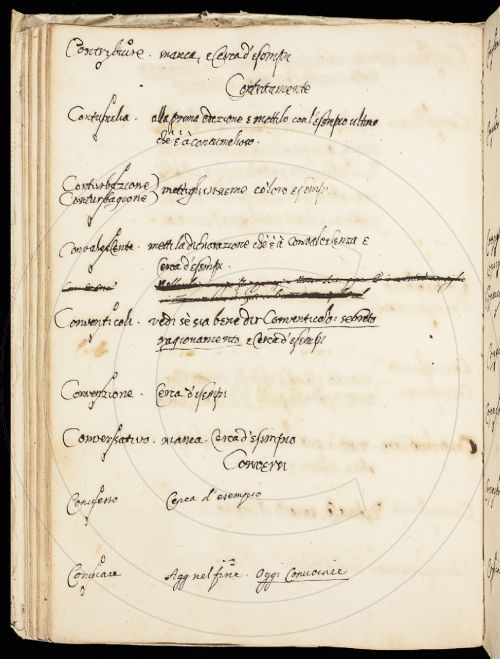 Contribuire. manca, e Cerca d'esempi
Contritamente
Contumelia. alla prima edizione e mettilo con l'esempio ultimo
che è à contumelioso.
Conturbazione
Conturbagione mettigli insieme co loro esempi
Convalescente. metti la dichiarazione che è à Convalescenza e
Cerca d'esempi.
Conventicoli. vedi se sia bene dir Conventicolo: segreto
ragionamento e Cerca d'esempi
Convenzione. Cerca d'esempi
Conversativo. manca. Cerca d'esempio
Cerca d'esempio
Convocare Agg. nel fine. Oggi Convocare